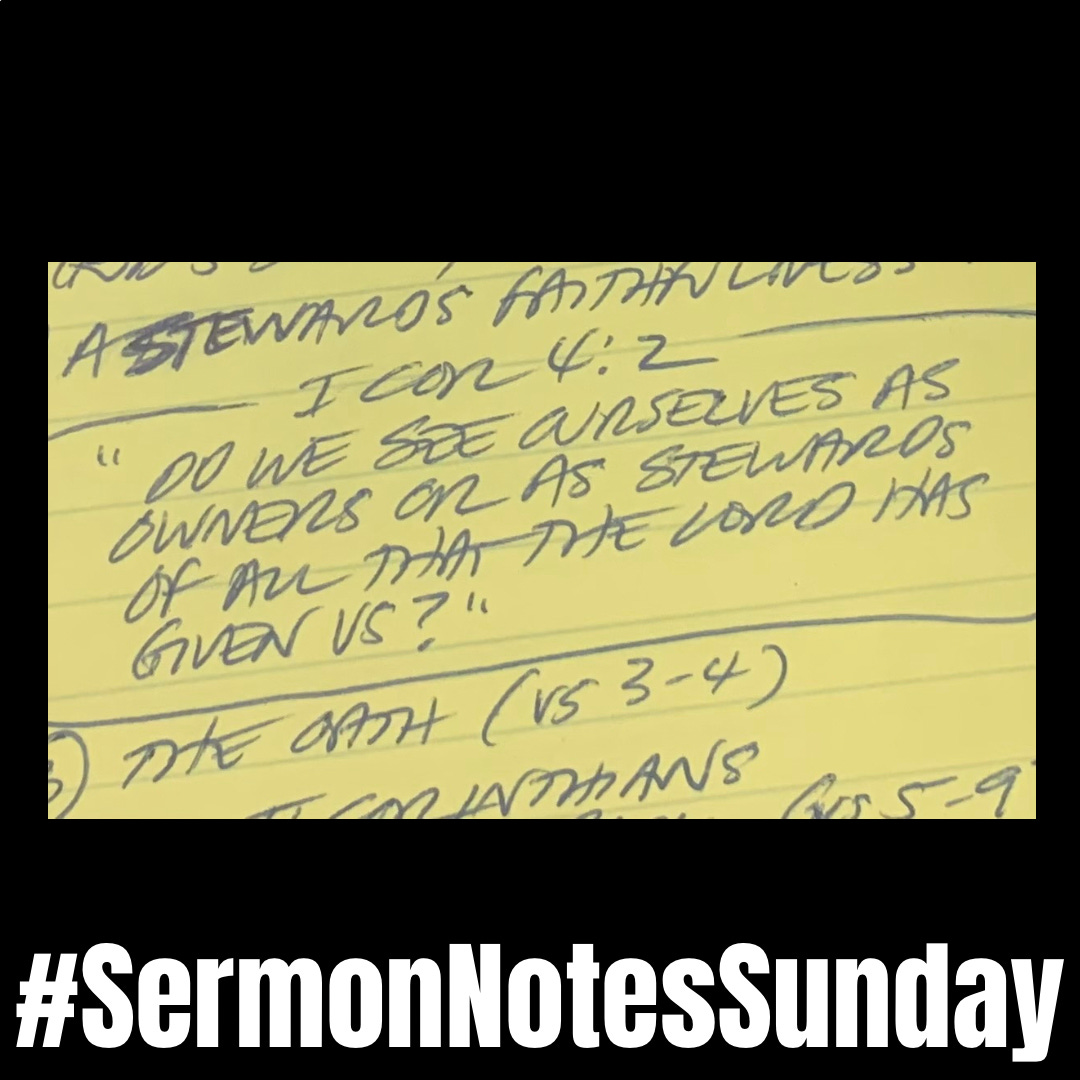 A STEWARD'S FAITHFULNESS
I COR 4:2
" DO WE SEE OURSELVES AS
OWNERS OR AS STEWARDS
OF ALL THAT THE LORD HAS
GIVEN US? "
THE OATH (VS 3-4)
II CORINTHIANS
(VS 5-9
#SermonNotesSunday